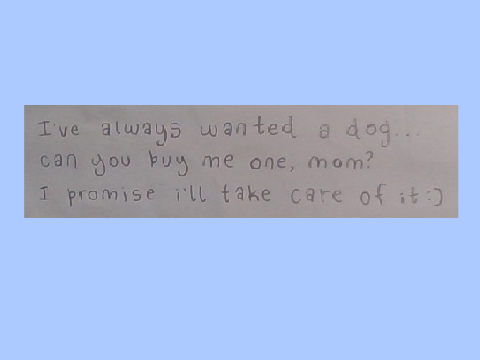 I've always wanted a dog...
can you buy me one, mom?
I promise i'll take care of it :)